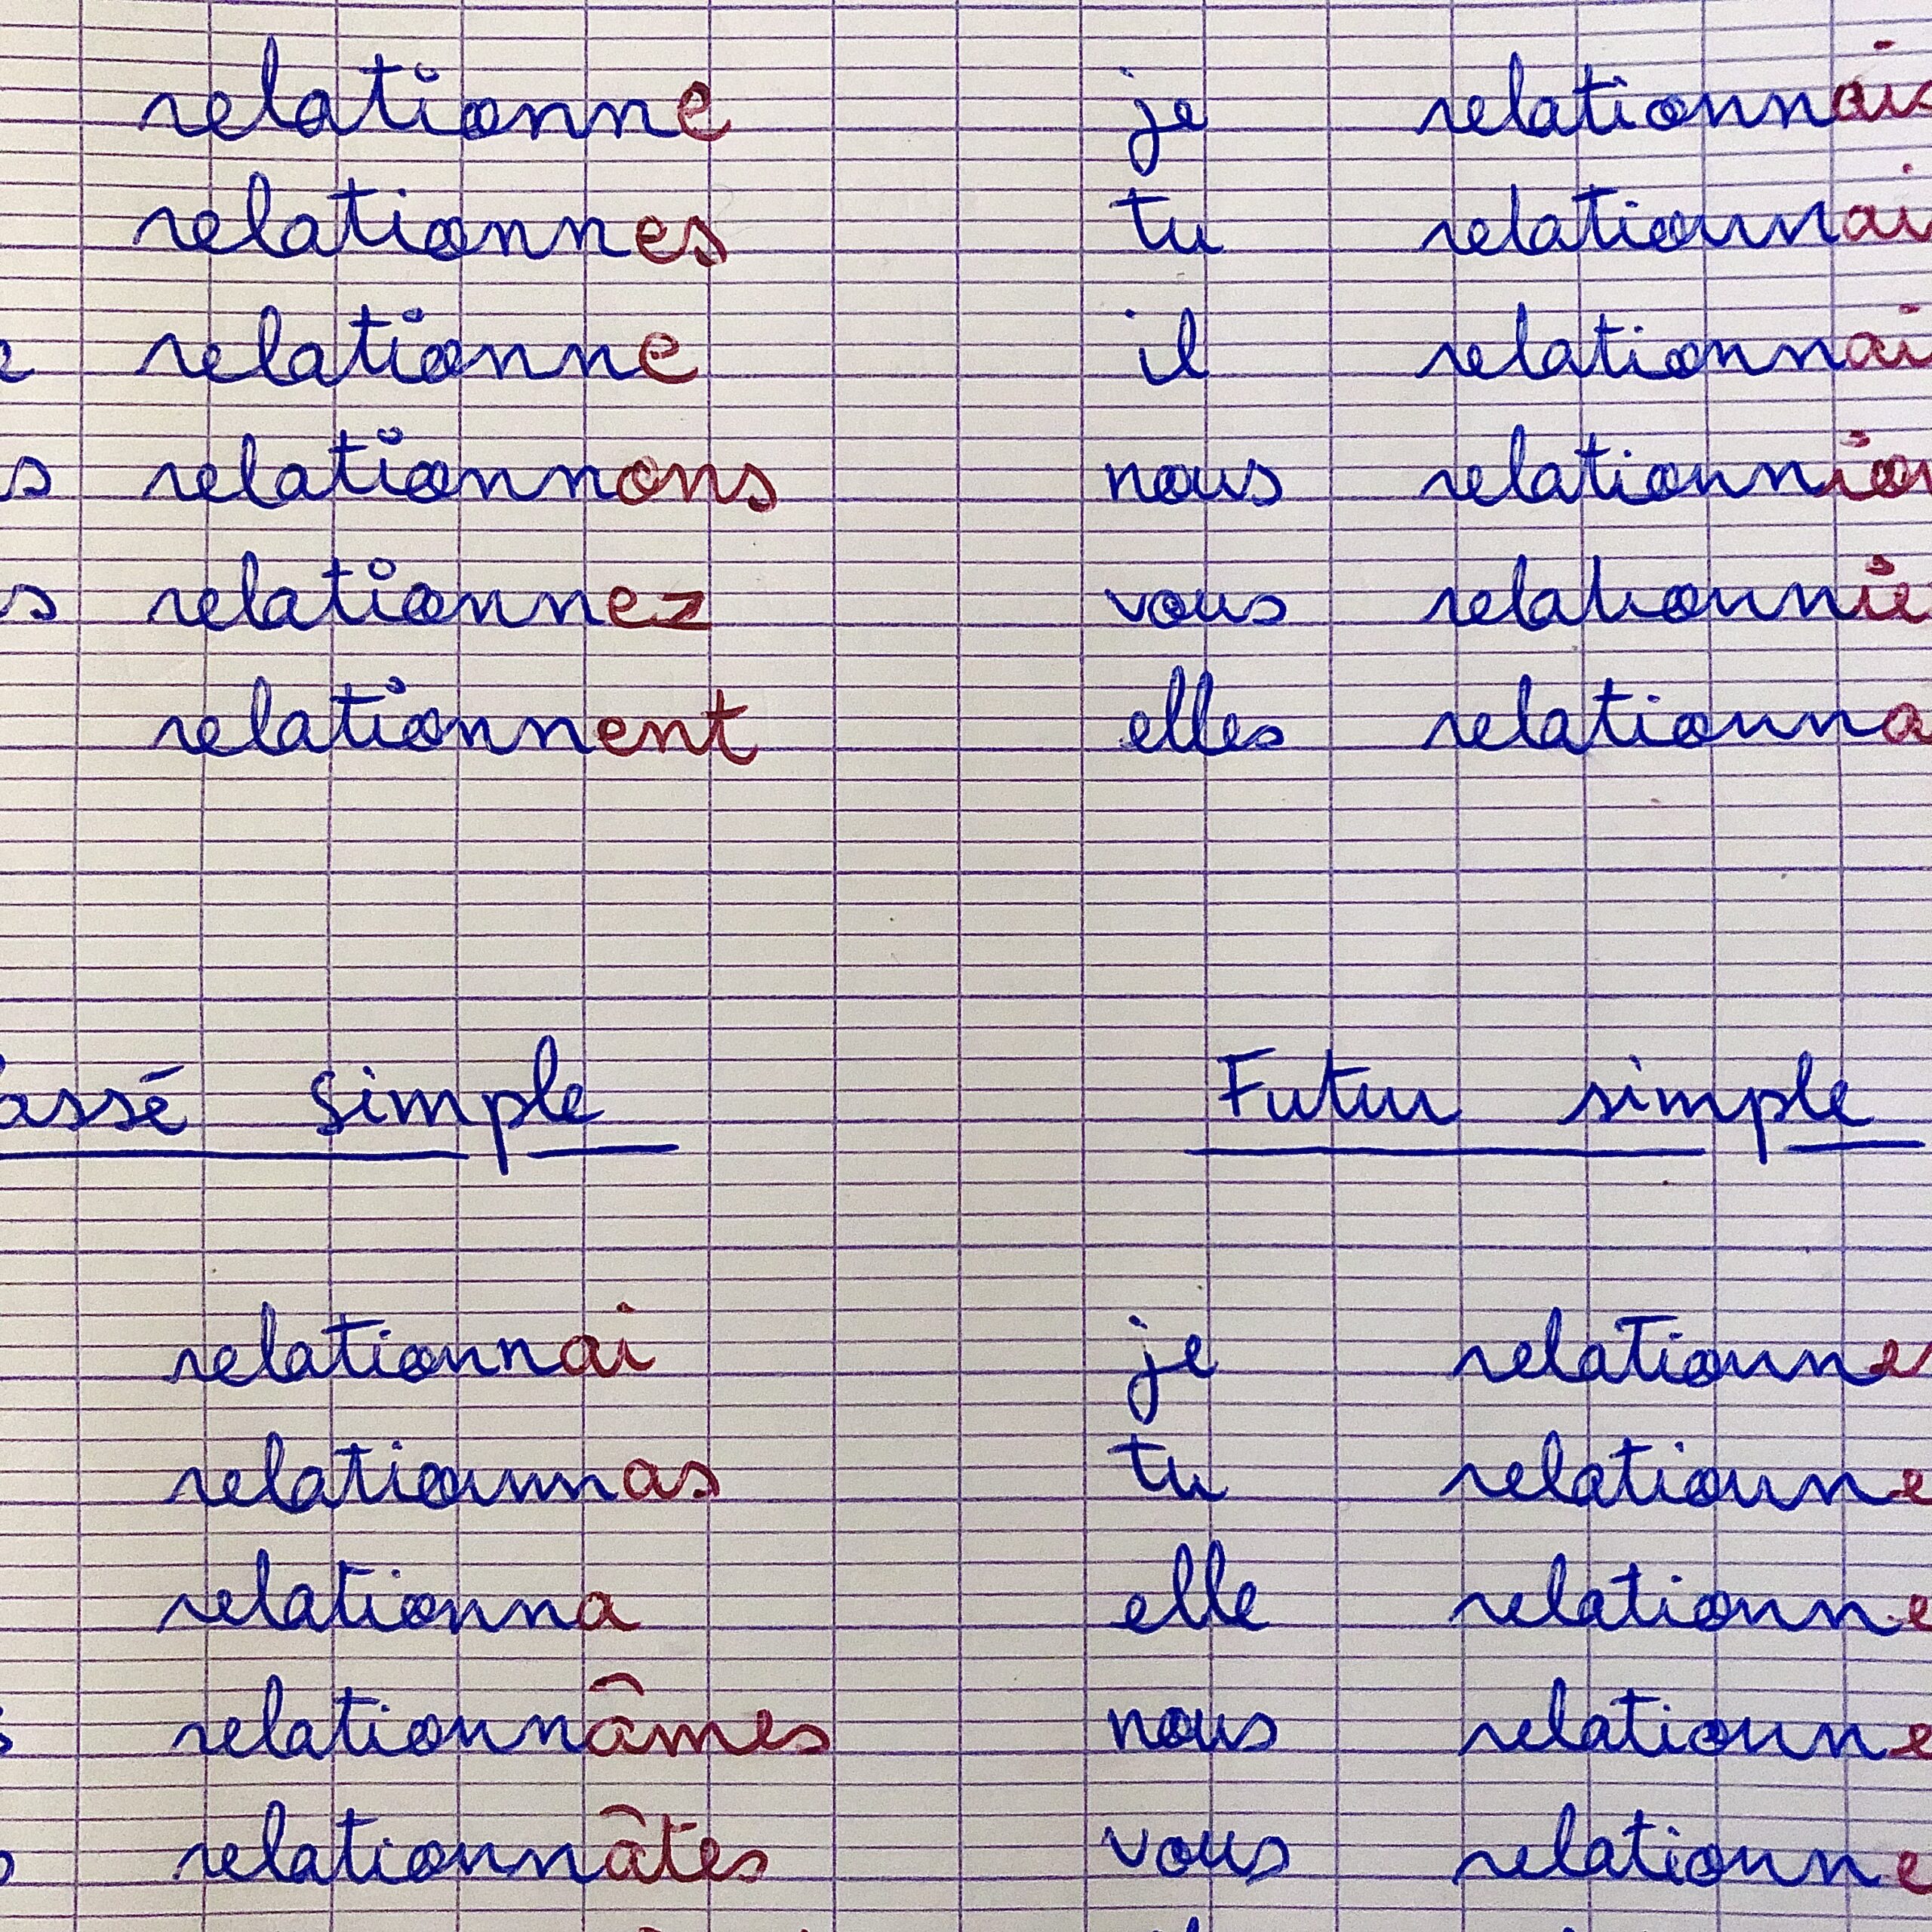 relationne je relationnais
relationnes tu relationnai
e relationne il relationnai
s relationnons nous relationnion
s relationnez vous relationnie
relationnent elles relationna
assé simple Futur simple
relationnai je relationne
relationnas tu relationne
relationna elle relationne
s relationnâmes nous relationne
s relationnâtes vous relationne